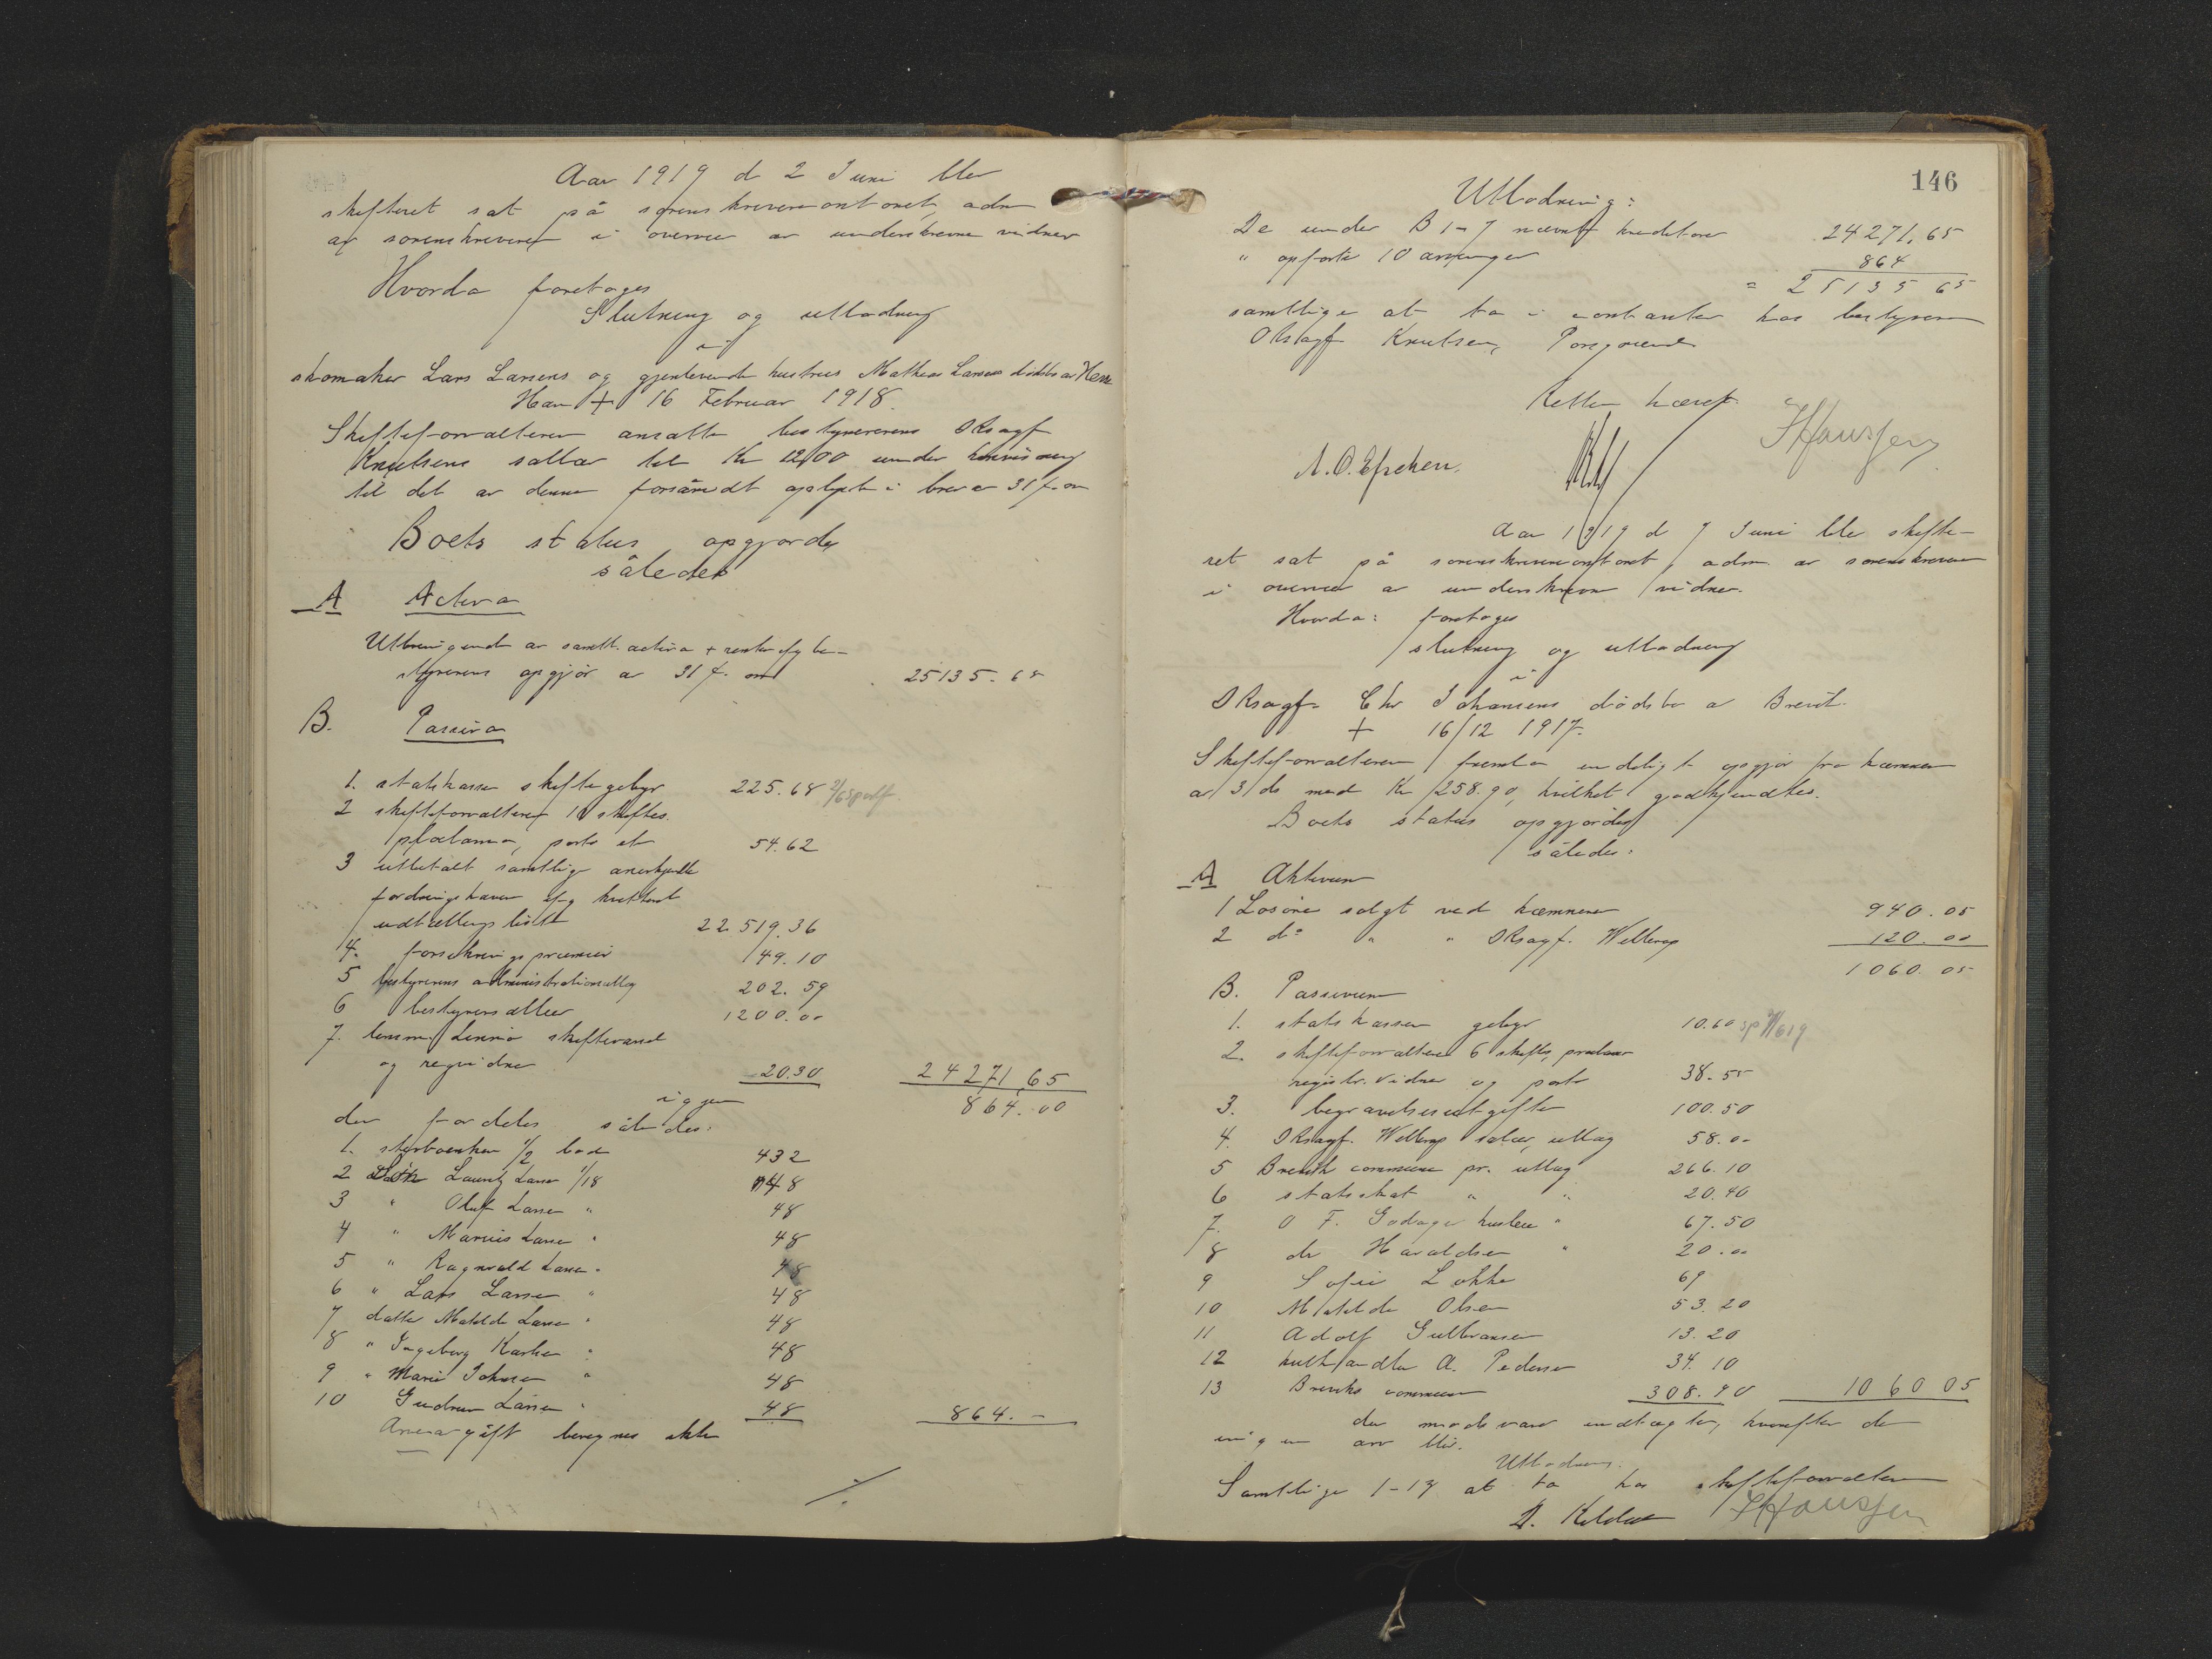 Aar 1919 d 2 Juni blev
skifteret sat på sorenskriverkontoret, adm
af sorenskriveren i overvær av underskrevne vidner
Hvorda foretoges
Slutning og utlodning
i
skomaker Lars Larsens og gjenlevende hustrus Mathea Larsens dødsbo av
Han + 16 Februar 1918.
Skifteforvalteren ansatte bestyrerens Oksagf
Knutsens sallær til Kr 1200 under henvisning
til det av denne forsåvidt oplyste i brev av 31 f. m
Boets status opgjordes
således
A Activa
Utbringende av samtl. activa + renter efg be-
styrerens opgjör av 31 f. m 25135.65
B. Passiva
1. statskassen skiftegebyr 225.68
2 skifteforvalteren 10 skiftes.
proclama, porto et 54.62
3 utbetalt samtlige anerkjendte
fordringshavere efg kvittert
udtællingsliste 22.519.36
4. forsikringspræmier 49.10
5 bestyrerens administrationsutlæg 202.59
6 bestyrersallær 1200.00
7. lensm. skiftevand
og regvidner 20.30 24271,65
igjen 864.00
der fordeles således:
1. sterboenken 1/2 bod 432
2 Søn Lauritz Larsen 1/18 48
3 " Oluf Larsen " 48
4 " Marius Larsen " 48
5 " Ragnvald Larsen " 48
6 " Lars Larsen " 48
7 datter Matilde Larsen " 48
8 " Ingeborg Karlsen " 48
9 " Marie Johnsen " 48
10 Gudrun Larsen " 48 864.-
Arveavgift beregnes ikke
./.
146
Utlodning:
De under B 1-7 nævnte kreditorer 24271,65
" opförte 10 arvinger 864
= 25135 65
samtlige at ta i contanter hos bestyreren
Oksagf Knutsen, Porsgrund
Retten hævet.
Aar 1919 d 7 Juni blev skifte-
ret sat på sorenskriverkontoret, adm. av sorenskriveren
i overvær av underskrevne vidner.
Hvorda: foretoges
slutning og utlodning
i
Oksagf. Chr Johansens dödsbo av Brevik.
+ 16/12 1917.
Skifteforvalteren fremla endeligt opgjør fra kæmneren
av 3/ ds med Kr 258.90, hvilket godkjendtes.
Boets status opgjordes
således:
A Aktivum
1 Lösöre solgt ved kæmneren 940.05
2 do " " Oksagf. Wellerop 120.00
1060.05
B. Passivum
1. statskassen gebyr 10.60
2. skifteforvalteren 6 skifts, proclama
registr. vidner og porto 38.55
3. begravelsesutgifter 100.50
4. Oksagf. Wellerop salær, utlæg 58.00
5 Brevik commune pr. utlæg 266.10
6 statsskat " " 20.40
7. O F. Godager husleie " 67.50
8 dr Haraldsen " 20.00
9 Sofie Løkke 69
10 Matilde Olsen 53.20
11 Adolf Gulbransen 13.20
12 kulhandler A. Pedersen 34.10
13 Breviks commune 308.90 1060 05
der modsvarer indtægter, hvorefter der
ingen arv blir.
Utlodnes.
Samtlige 1-13 at ta hos skifteforvalteren